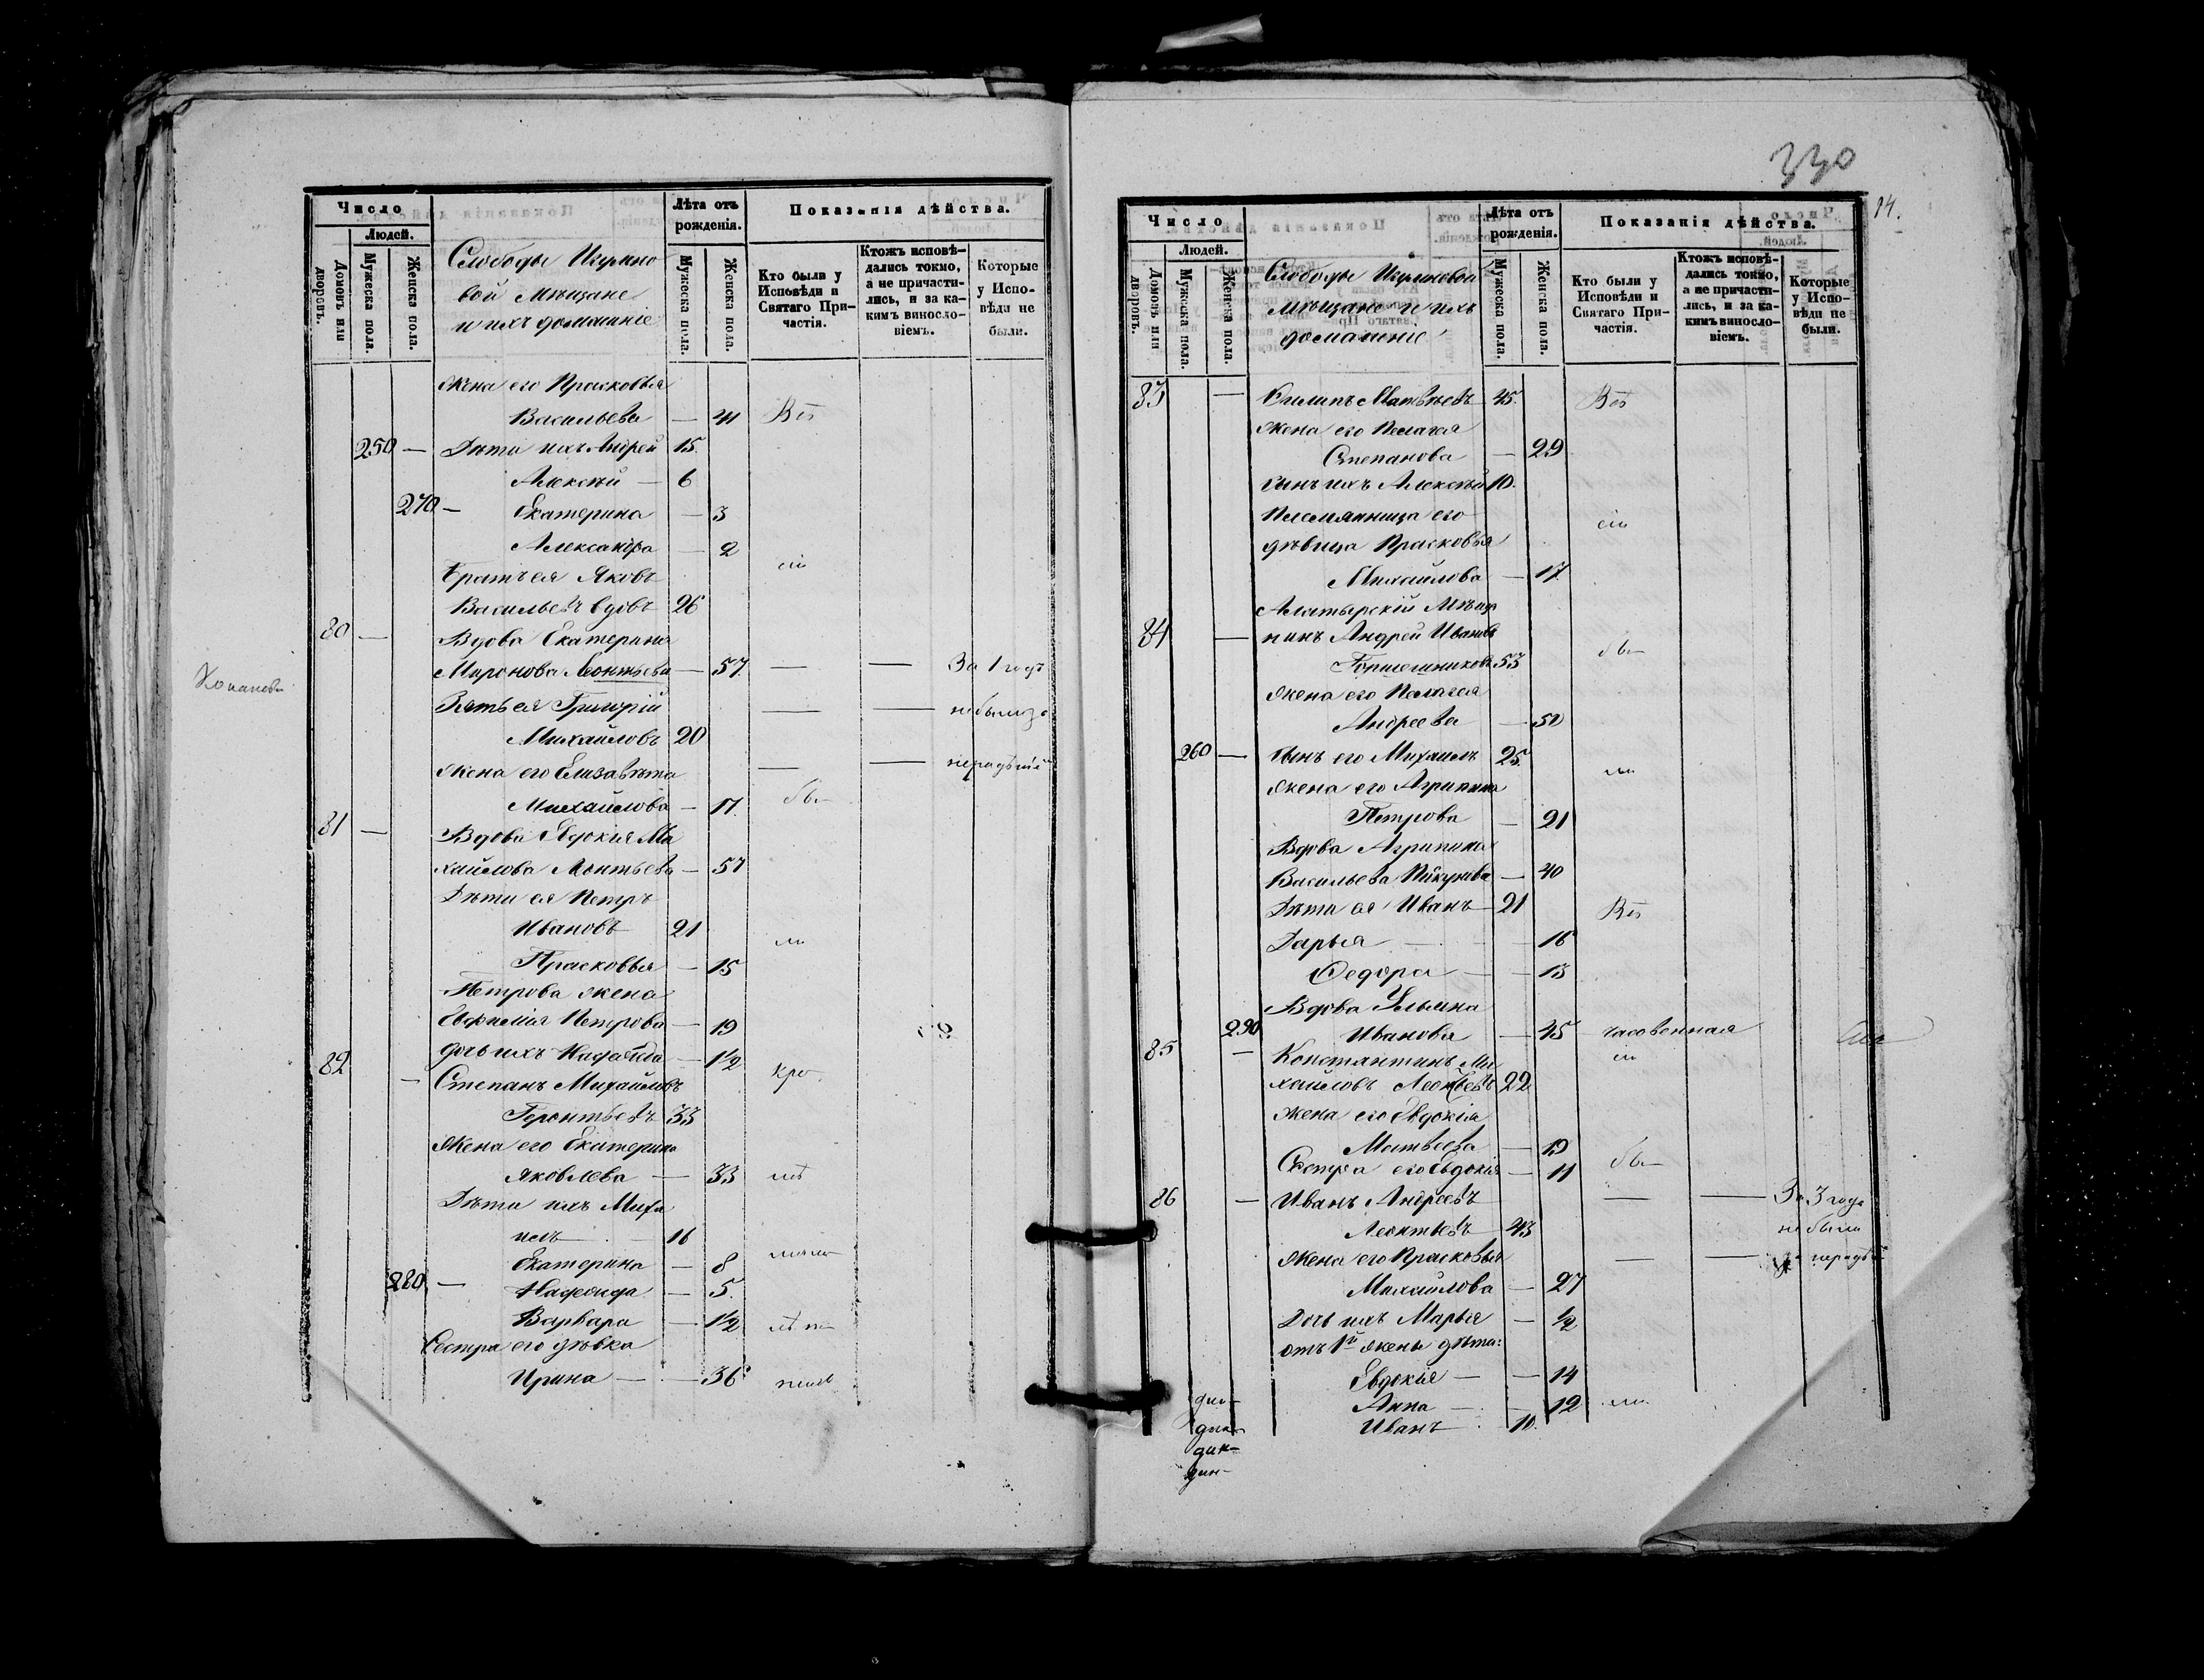 Число
Людей.
Домовъ или дворовъ.
Мужеска пола.
Женска пола.
Слободы
вой Мѣщане
и ихъ домашніе
Лѣта отъ рожденія.
Мужеска пола.
Женска пола.
Показанія дѣйства.
Кто были у Исповѣди и Святаго Причастія.
Ктожъ исповѣдались токмо, а не причастились, и за какимъ винословіемъ.
Которые у Исповѣди не были.
Жена его Прасковья
Васильева — 41
250 — Дѣти ихъ Андрей 15.
Алексѣй — 6
270 — Екатерина — 3
Александра — 2
Братъ ея Яковъ
Васильевъ вдовъ 26
80 — Вдова Екатерина
Миронова Леонтьева — 57. — — За 1 годъ
Зять ея Григорій — — не были за
Михайловъ 20
Жена его Елизавѣта — —
Михайлова — 17.
81 — Вдова Евдокія Ми
хайлова Леонтьева — 57
Дѣти ея Петръ
Ивановъ 21
Прасковья — 15
Петрова жена
Евфимія Петрова — 19
дочь ихъ Надежда — 1/2
82 — Степанъ Михайловъ
Леонтьевъ 33
Жена его Екатерина
Яковлева — 33
Дѣти ихъ Миха
илъ — 16
Екатерина — 8
280. — Надежда — 5.
Варвара — 1/2
Сестра его дѣвка
Ирина — — 36
330
14.
Число
Людей.
Домовъ или дворовъ.
Мужеска пола.
Женска пола.
Слободы
мѣщане и ихъ
домашніе
Лѣта отъ рожденія.
Мужеска пола.
Женска пола.
Показанія дѣйства.
Кто были у Исповѣди и Святаго Причастія.
Ктожъ исповѣдались токмо, а не причастились, и за какимъ винословіемъ.
Которые у Исповѣди не были.
83 — Филипъ Матвѣевъ 45.
Жена его Пелагея
Степанова — 29
сынъ ихъ Алексѣй 10.
Племянница его
дѣвица Прасковья
Михайлова — 17.
Алатырскій Мѣща
84 — нинъ Андрей Ивановъ
53
жена его Пелагея
Андреева — 50
260 — Сынъ его Михаилъ 25.
жена его Агрипина
Петрова — 21
Вдова Агрипина
Васильева — 40
Дѣти ея Иванъ — 21
Дарья — — 16
Федора — — 13
Вдова Ульяна
290 Иванова — 45 часовенная
85 — Константинъ Ми
хайловъ Леонтьевъ 22
жена его Евдокія
Матвеева — 19
Сестра его Евдокія — 11
86 — Иванъ Андреевъ — — За 3 года
Леонтьевъ 43 не были
Жена его Прасковья — —
Михайлова — 27
Дочь ихъ Марья — 1/2
отъ 1й жены дѣти:
Евдокія — — 14
Анна — — 12
Иванъ — 10.